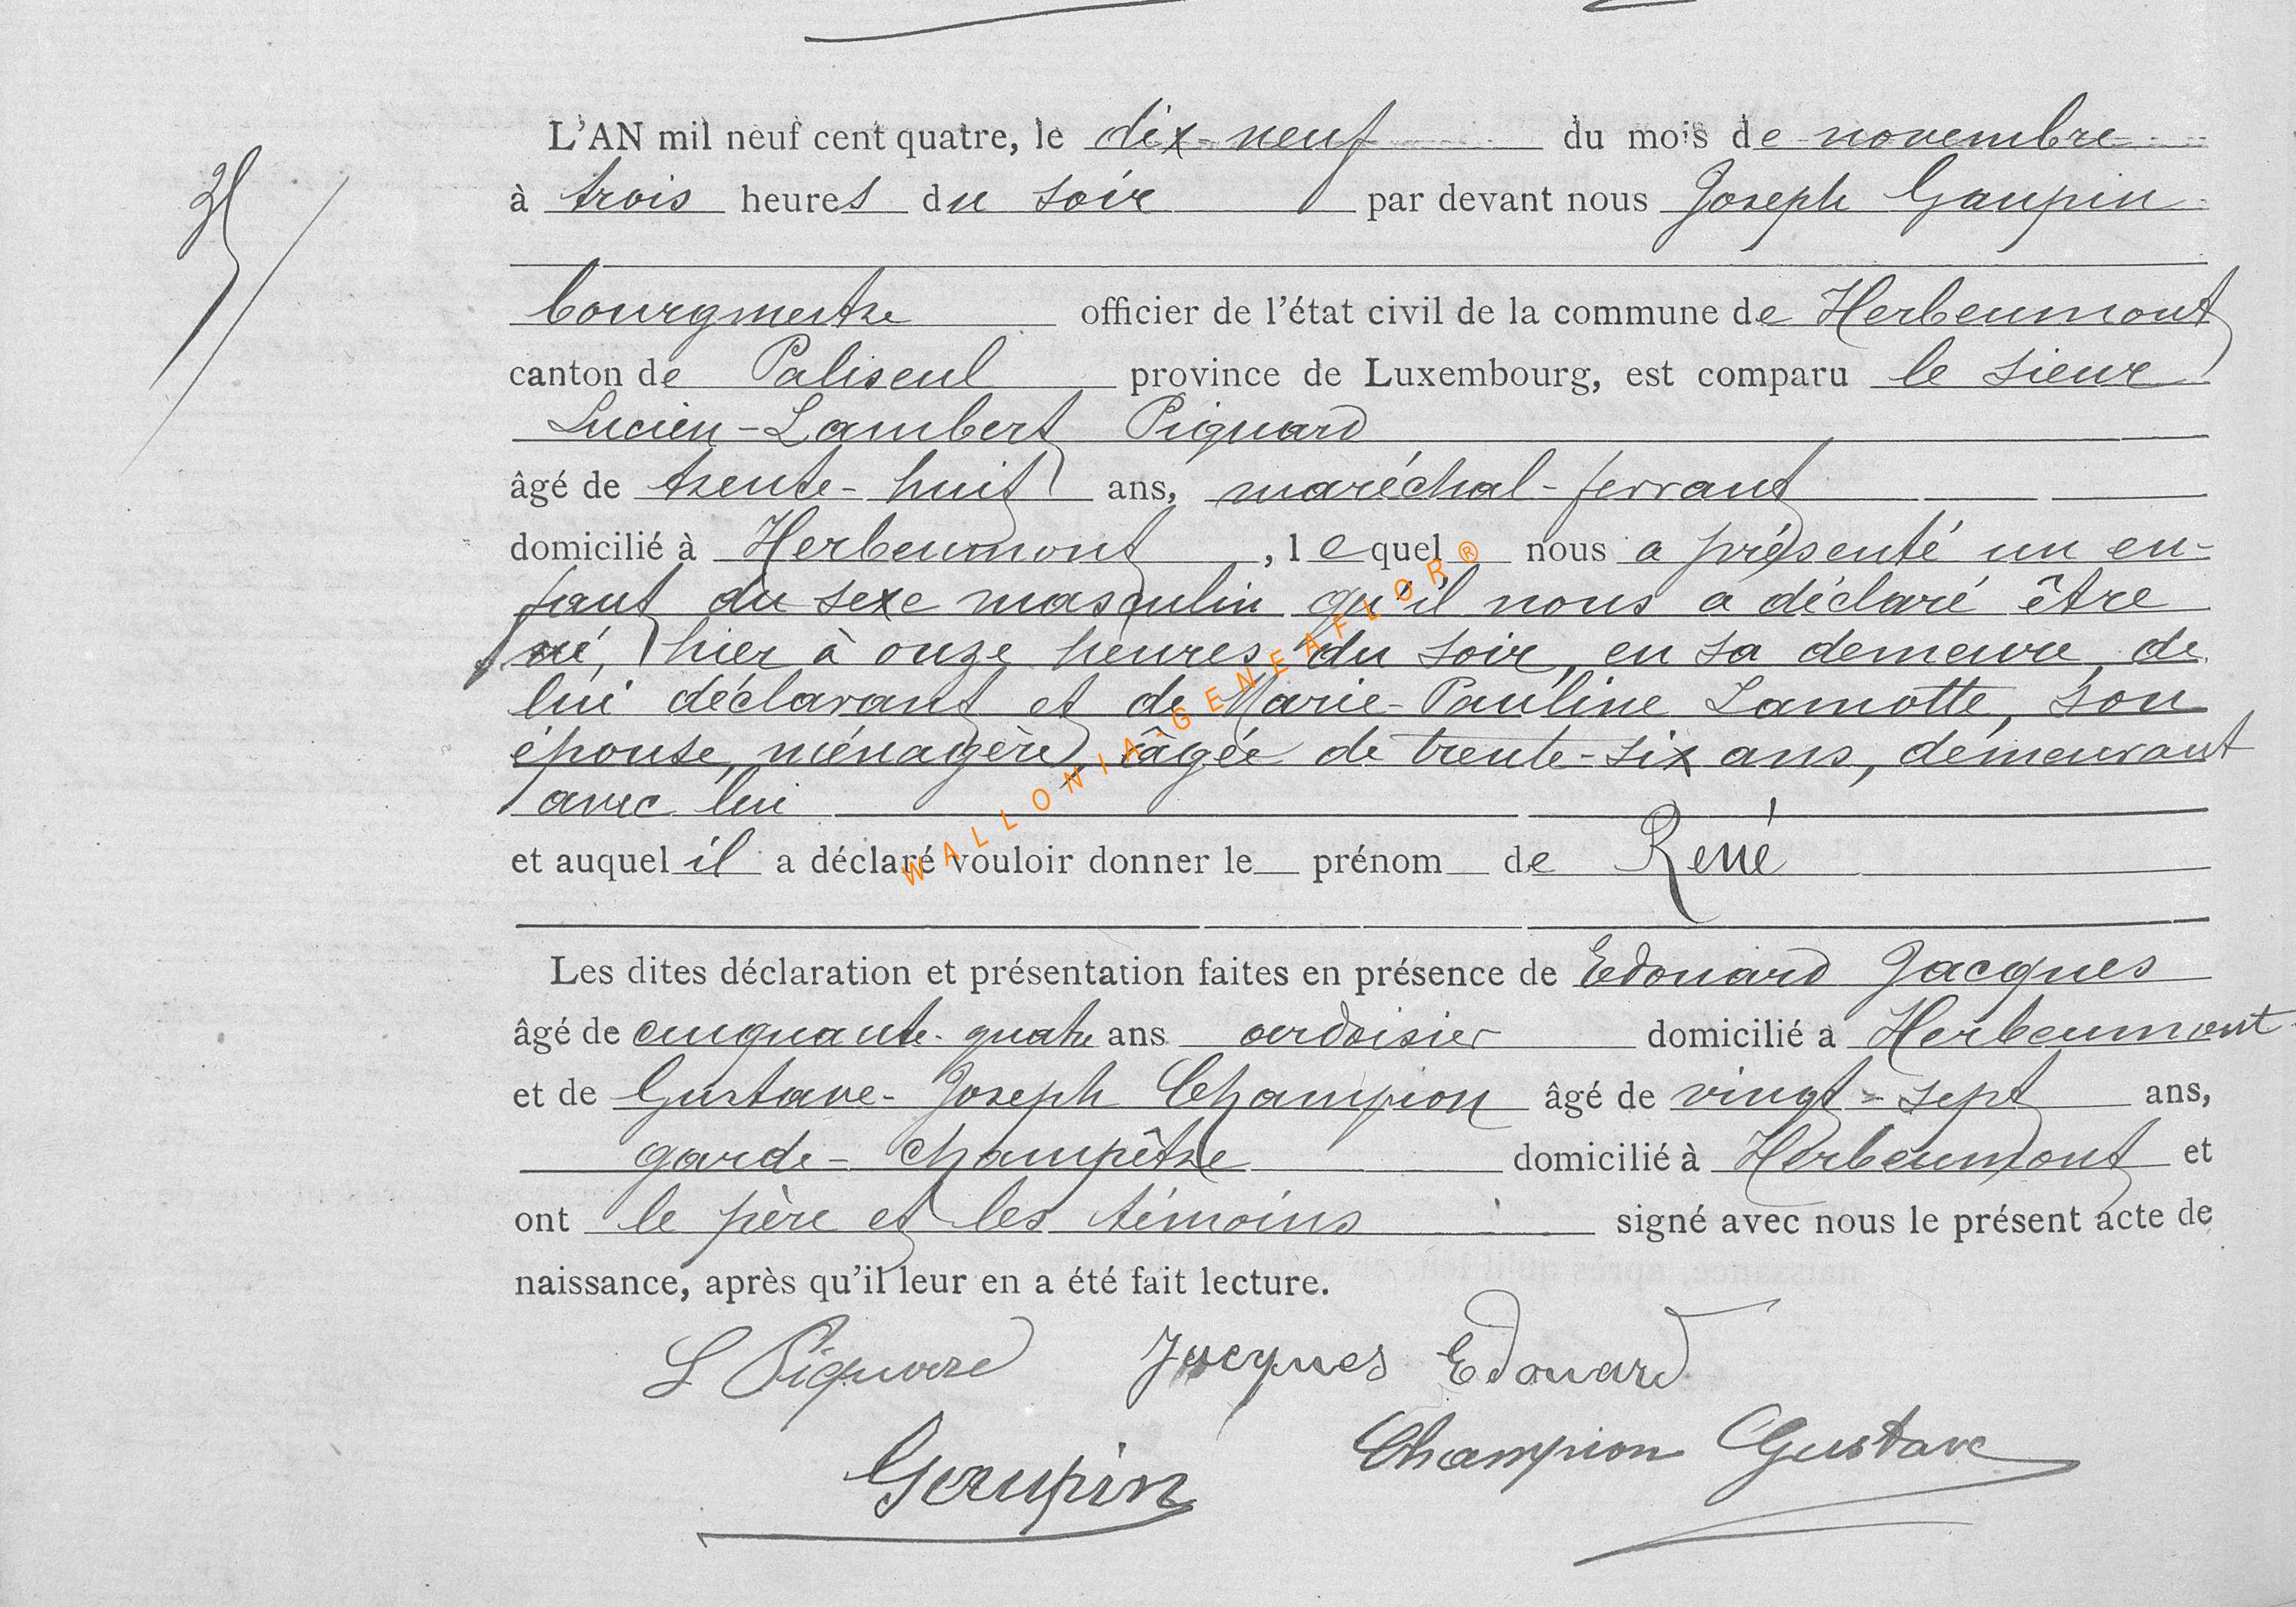 L'AN mil neuf cent quatre, le dix-neuf du mois de novembre
à trois heures du soir par devant nous Joseph Gaupin
bourgmestre officier de l'état civil de la commune de Herbeumont
canton de Paliseul province de Luxembourg, est comparu le sieur
Lucien-Lambert Piquard
âgé de trente-huit ans, maréchal-ferrant
domicilié à Herbeumont, lequel nous a présenté un en-
fant du sexe masculin qu'il nous a déclaré être
né, hier à onze heures du soir, en sa demeure, de
lui déclarant et de Marie-Pauline Lamotte, son
épouse, ménagère, âgée de trente-six ans, demeurant
avec lui
et auquel il a déclaré vouloir donner le prénom de René
Les dites déclaration et présentation faites en présence de Edouard Jacques
âgé de cinquante-quatre ans ardoisier domicilié à Herbeumont
et de Gustave-Joseph Champion âgé de vingt-sept ans,
garde-champêtre domicilié à Herbeumont et
ont le père et les témoins signé avec nous le présent acte de
naissance, après qu'il leur en a été fait lecture.
L Piquard Jacques Edouard
Gaupin Champion Gustave
WALLONIA-GENEAFLOR®